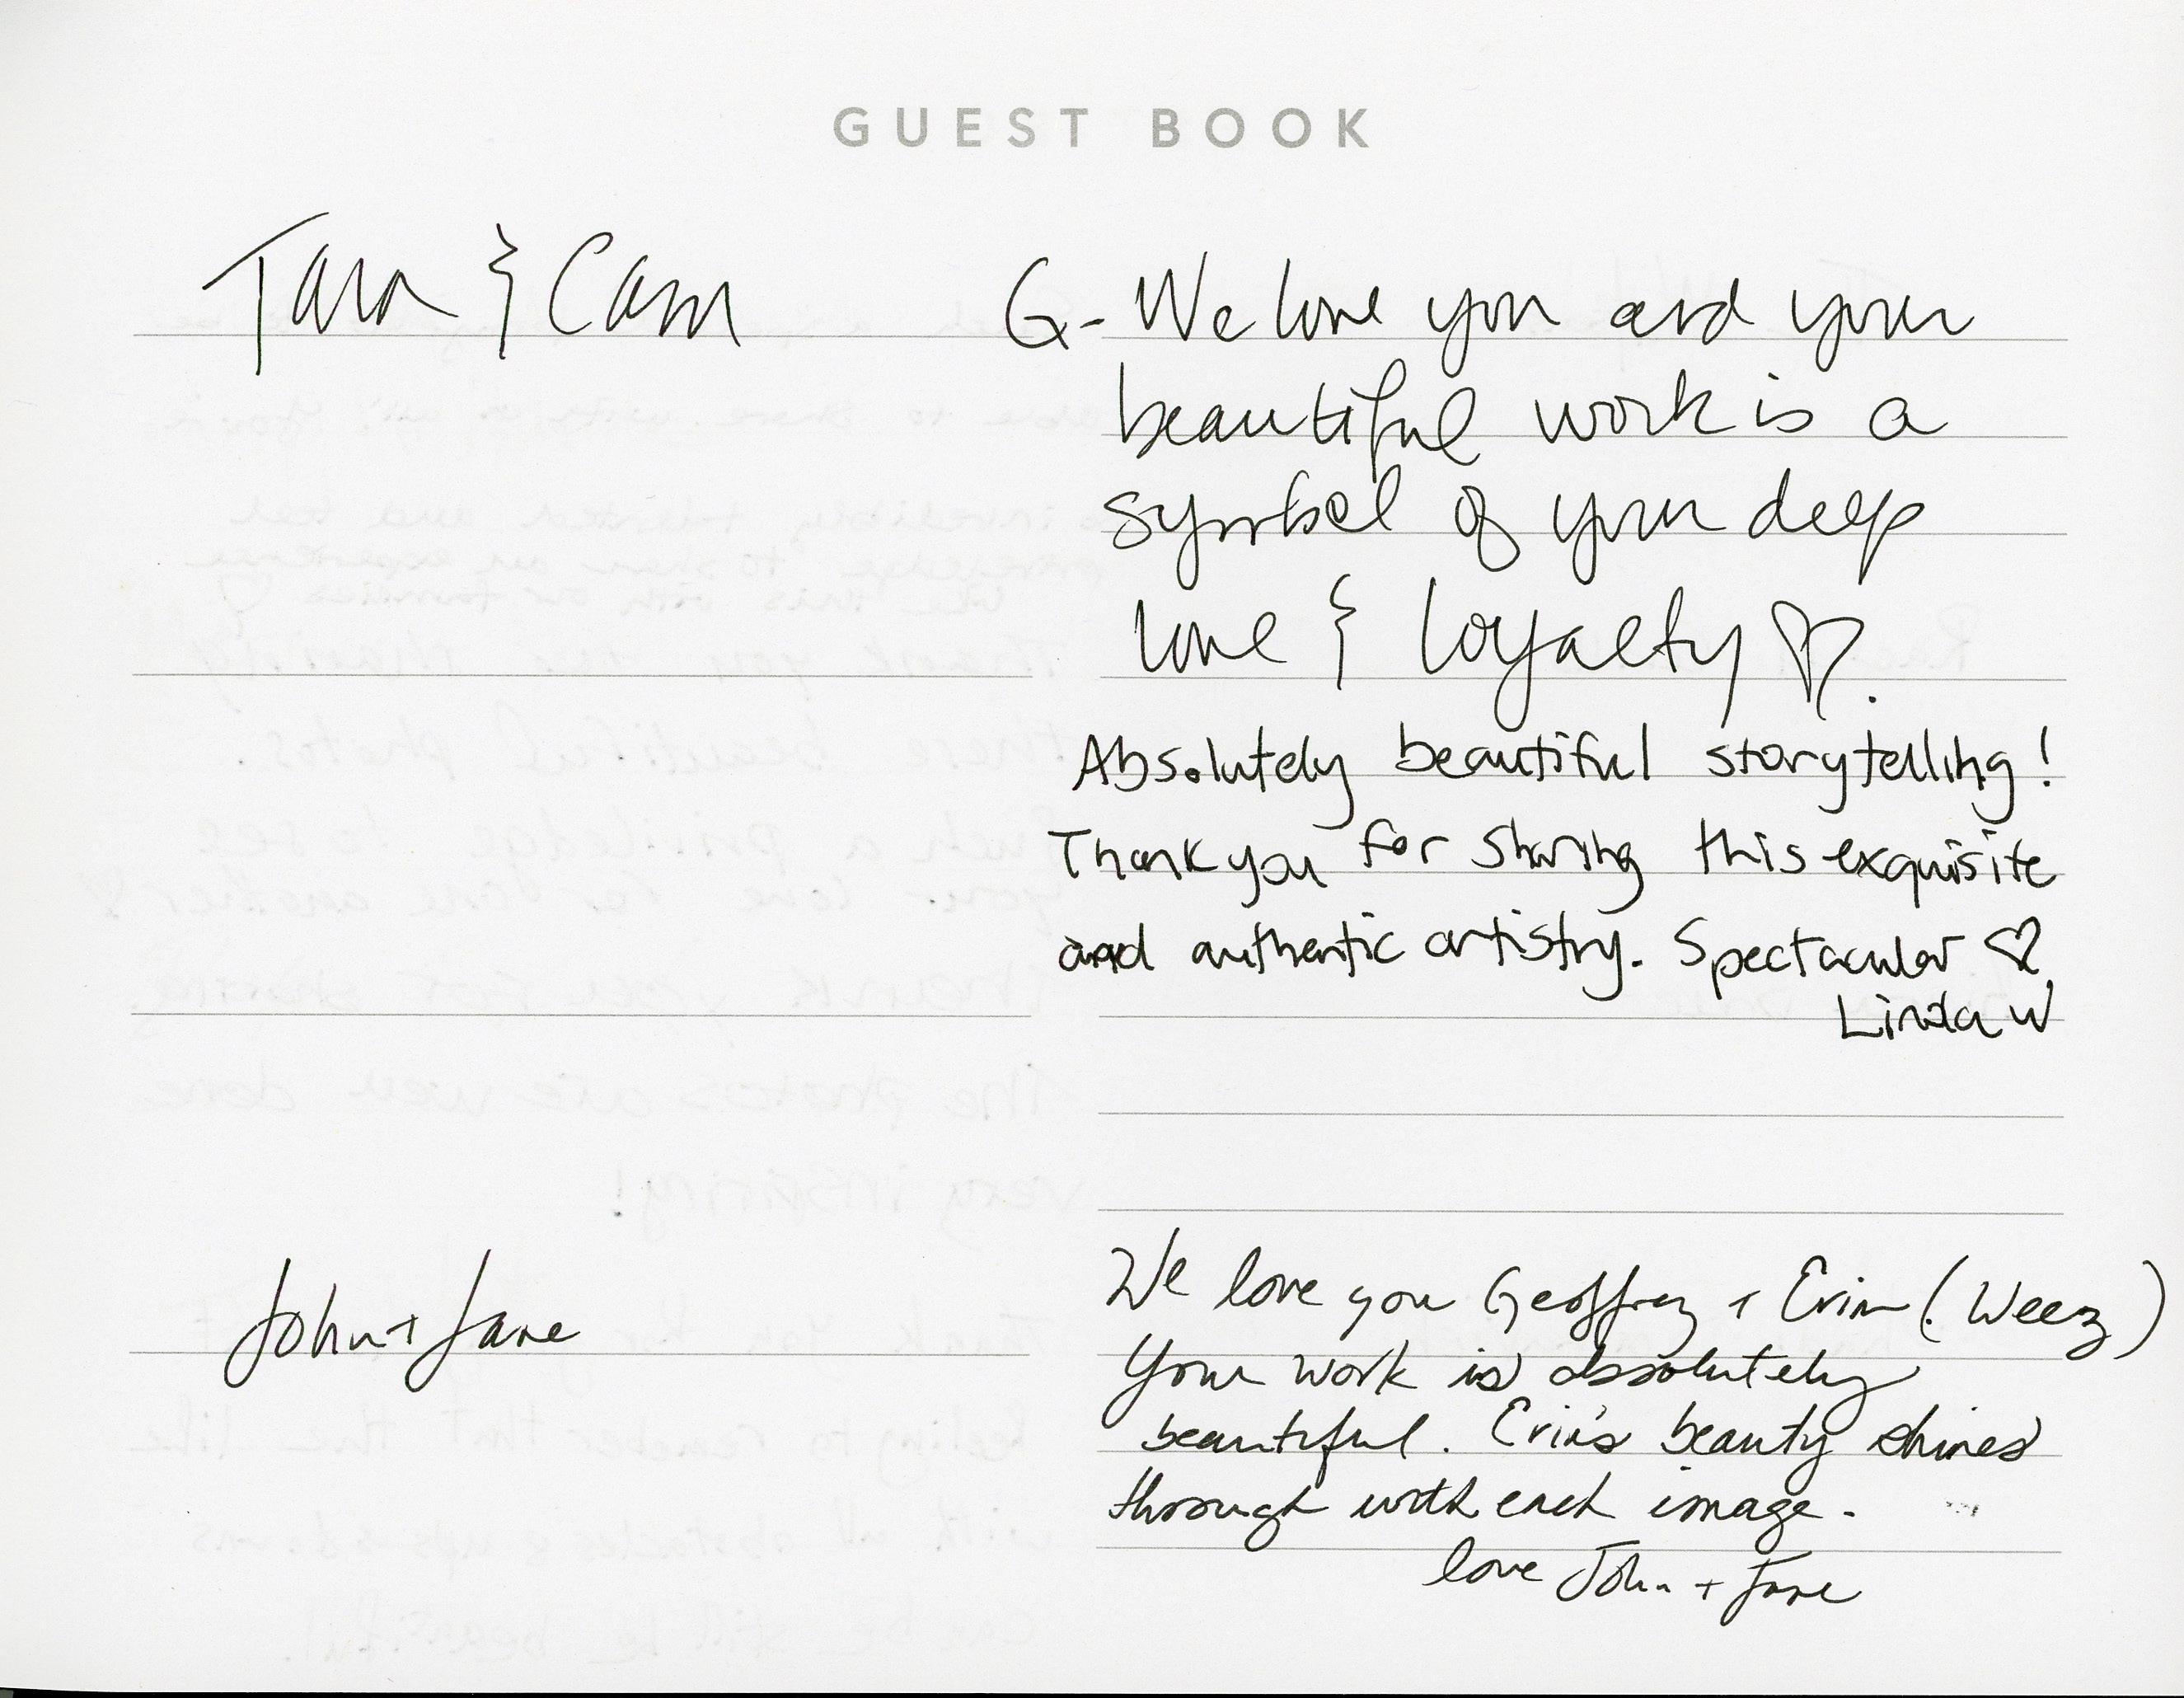 GUEST BOOK
Tara & Cam
G- We love you and your
beautiful work is a
symbol of your deep
love & loyalty ♡.
Absolutely beautiful storytelling!
Thank you for sharing this exquisite
and authentic artistry. Spectacular ♡
Linda W
John + Jane
We love you Geoffrey + Erin (Weez)
Your work is absolutely
beautiful. Erin's beauty shines
through with each image.
love John + Jane